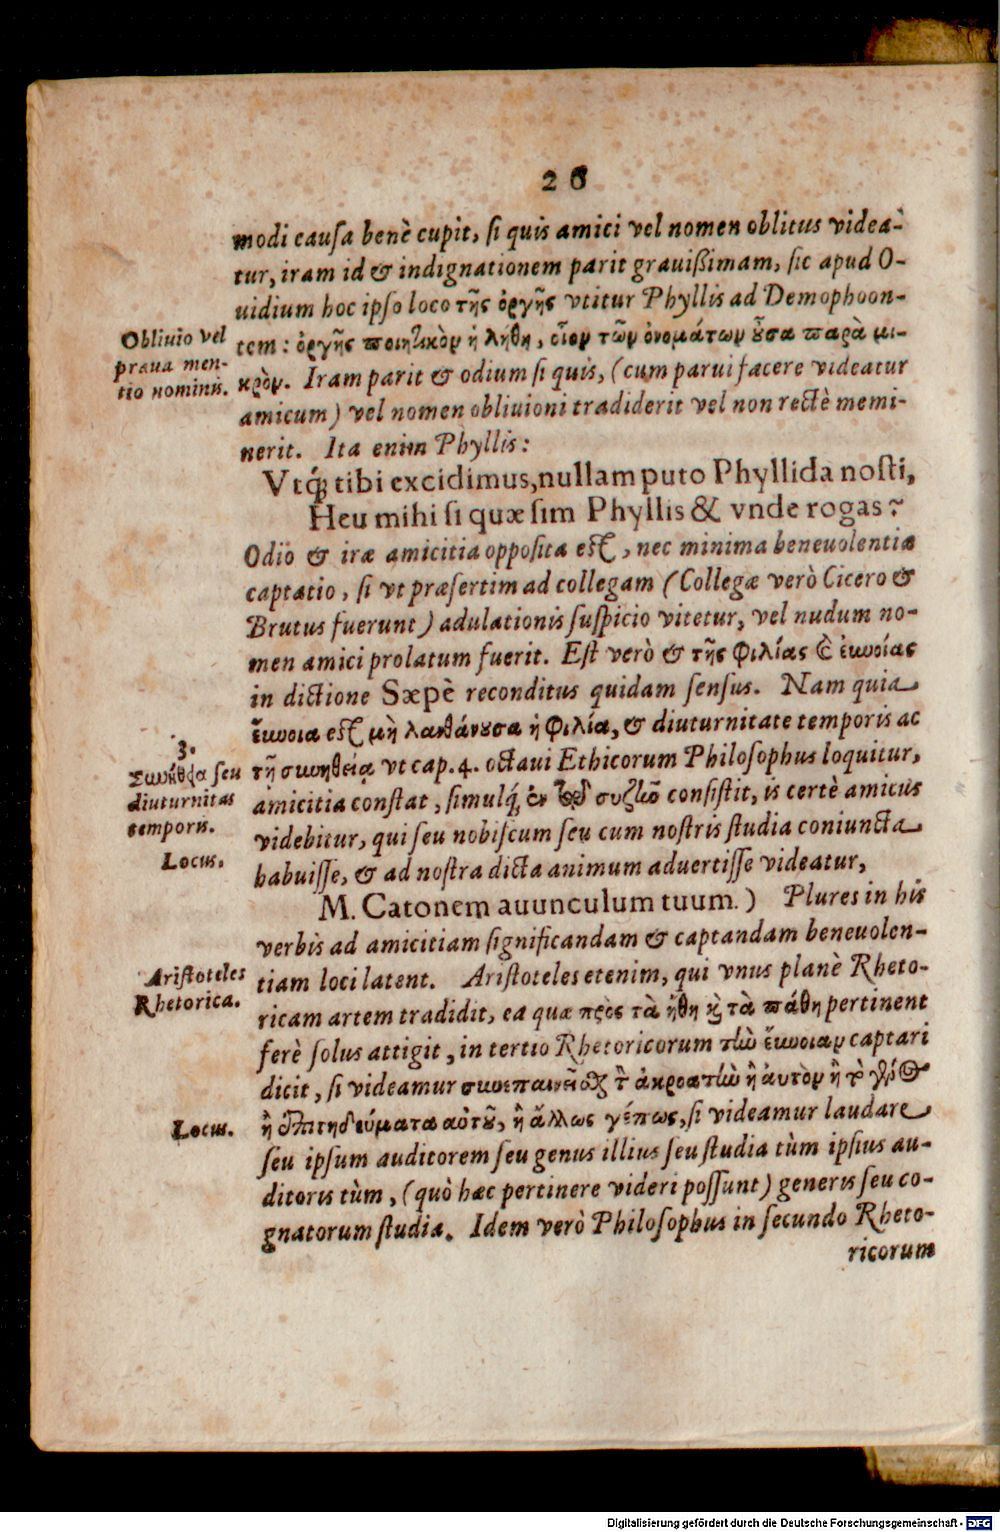 26
modi causa benè cupit, si quis amici vel nomen oblitus videa-
tur, iram id & indignationem parit grauißimam, sic apud O-
uidium hoc ipso loco τῆς ὀργῆς vtitur Phyllis ad Demophoon-
Obliuio vel
praua men-
tio nominis.
tem: ὀργῆς ποιητικὸν ἡ λήθη, οἷον τῶν ὀνομάτων οὖσα παρὰ μι-
κρὸν. Iram parit & odium si quis, (cum parui facere videatur
amicum) vel nomen obliuioni tradiderit vel non rectè memi-
nerit. Ita enim Phyllis:
Vtq́; tibi excidimus, nullam puto Phyllida nosti,
Heu mihi si quæ sim Phyllis & vnde rogas?
Odio & iræ amicitia opposita est, nec minima beneuolentiæ
captatio, si vt præsertim ad collegam (Collegæ verò Cicero &
Brutus fuerunt) adulationis suspicio vitetur, vel nudum no-
men amici prolatum fuerit. Est verò & τῆς φιλίας & ἐυνοίας
in dictione Sæpè reconditus quidam sensus. Nam quia
ἔυνοια est μὴ λανθάνουσα ἡ φιλία, & diuturnitate temporis ac
3.
Συνήθεια seu
diuturnitas
temporis.
Locus.
τῇ συνηθείᾳ vt cap. 4. octaui Ethicorum Philosophus loquitur,
amicitia constat, simulq́; ἐν τῷ συζῆν consistit, is certè amicus
videbitur, qui seu nobiscum seu cum nostris studia coniuncta
habuisse, & ad nostra dicta animum aduertisse videatur,
M. Catonem auunculum tuum.) Plures in his
verbis ad amicitiam significandam & captandam beneuolen-
Aristoteles
Rhetorica.
tiam loci latent. Aristoteles etenim, qui vnus planè Rheto-
ricam artem tradidit, ea quæ πρὸς τὰ ἤθη καὶ τὰ πάθη pertinent
ferè solus attigit, in tertio Rhetoricorum τὴν ἔυνοιαν captari
dicit, si videamur συνεπαινεῖσθαι τὸν ἀκροατὴν ἢ ἀυτὸν ἢ τὸ γένος
Locus.
ἢ ἐπιτηδεύματα αὐτοῦ, ἢ ἄλλως γέπως, si videamur laudare
seu ipsum auditorem seu genus illius seu studia tùm ipsius au-
ditoris tùm, (quò hæc pertinere videri possunt) generis seu co-
gnatorum studia. Idem verò Philosophus in secundo Rheto-
ricorum
Digitalisierung gefördert durch die Deutsche Forschungsgemeinschaft - DFG